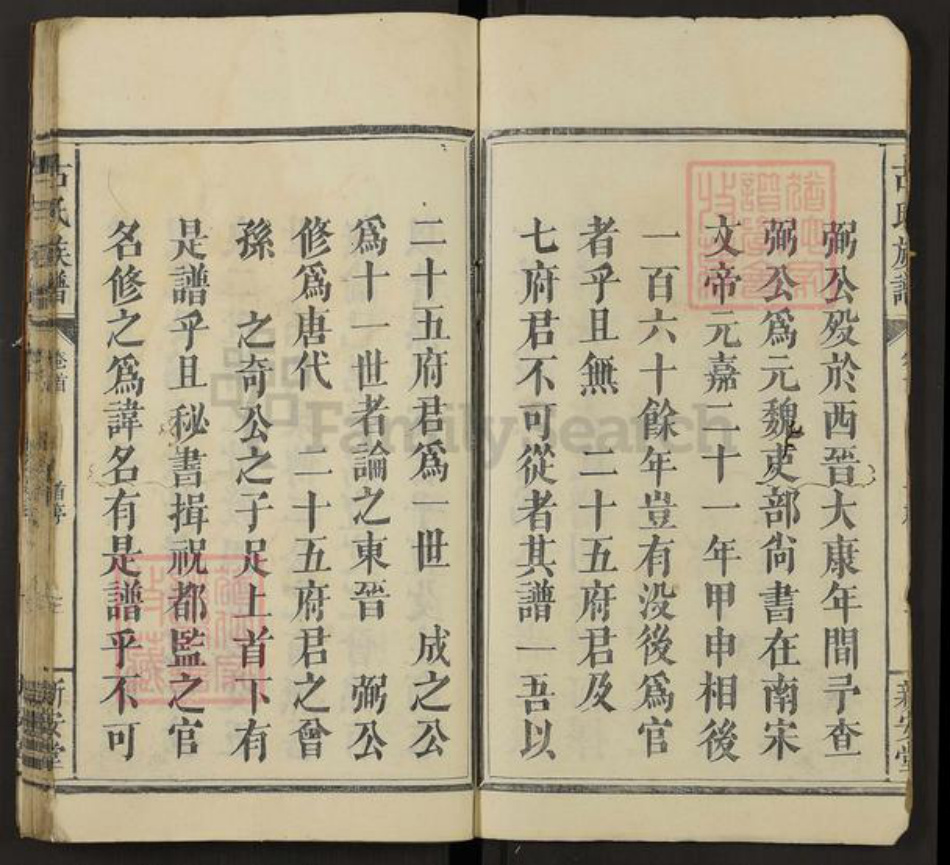 弼公歿於西晉大康年間予查
弼公爲元魏吏部尙書在南宋
文帝元嘉二十一年甲申相後
一百六十餘年豈有没後爲官
者乎且無 二十五府君及
七府君不可從者其譜一吾以
二十五府君爲一世 成之公
爲十一世者論之東晉 弼公
修爲唐代 二十五府君之曾
孫 之奇公之子足上首下有
是譜乎且秘書揖祝都監之官
名修之爲諱名有是譜乎不可
古氏族譜 卷首 新安堂
FamilySearch